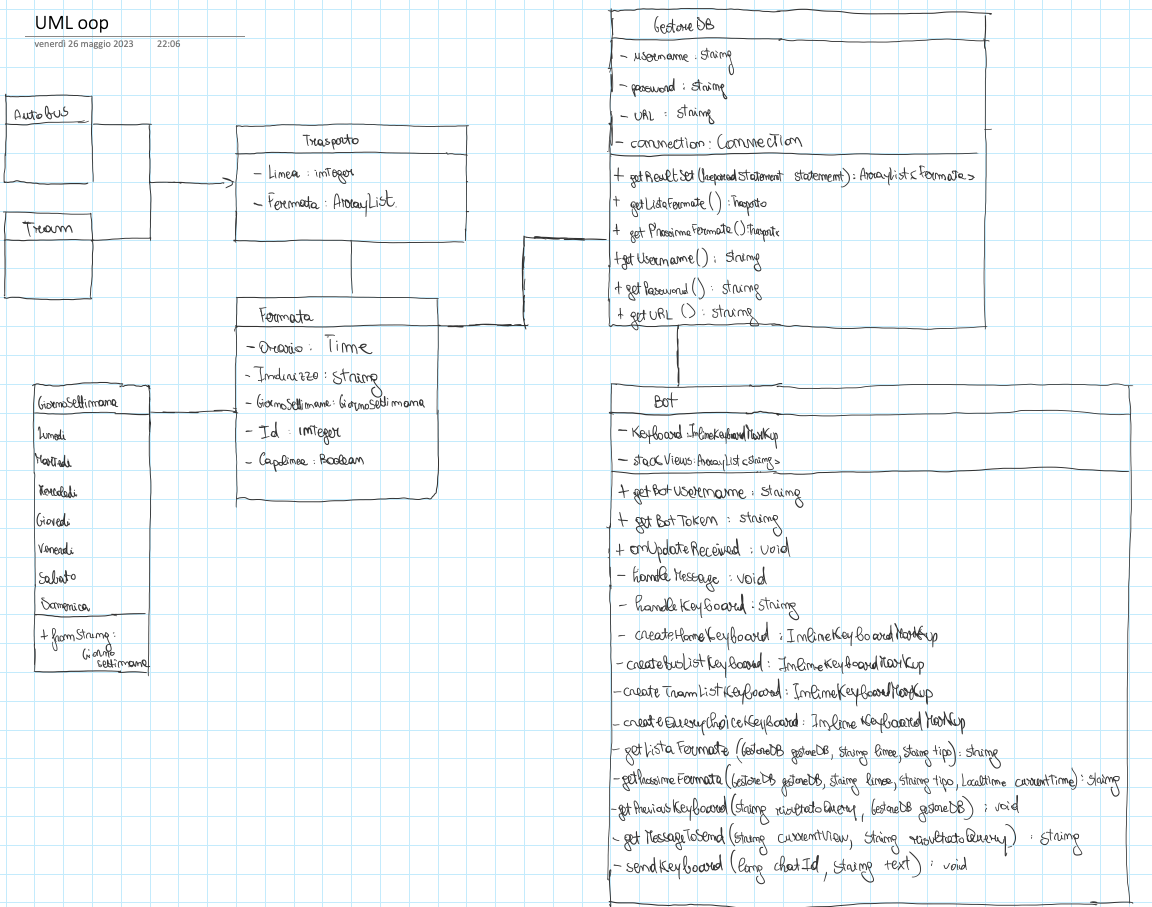 UML oop
venerdì 26 maggio 2023 22:06
Autobus
Tram
Trasporto
- Linea : integer
- Fermata : ArrayList
Fermata
- Orario : Time
- Indirizzo : String
- GiornoSettimana : GiornoSettimana
- Id : integer
- Capolinea : Boolean
GiornoSettimana
Lunedì
Martedì
Mercoledì
Giovedì
Venerdì
Sabato
Domenica
+ fromString :
Giorno
settimana
GestoreDB
- username : string
- password : string
- URL : string
- connection : Connection
+ getResultSet (PreparedStatement statement) : ArrayList<Fermata>
+ getListaFermate () : Trasporto
+ getProssimeFermate () : Trasporto
+ getUsername () : string
+ getPassword () : string
+ getURL () : string
Bot
- Keyboard : InlineKeyboardMarkup
- stackViews : ArrayList<string>
+ getBotUsername : string
+ getBotToken : string
+ onUpdateReceived : void
- handleMessage : void
- handleKeyboard : string
- createHomeKeyboard : InlineKeyboardMarkup
- createBusListKeyboard : InlineKeyboardMarkup
- createTramListKeyboard : InlineKeyboardMarkup
- createQueryChoiceKeyboard : InlineKeyboardMarkup
- getListaFermate (GestoreDB gestoreDB, string linea, string tipo) : string
- getProssimeFermata (GestoreDB gestoreDB, string linea, string tipo, Localtime currentTime) : string
- getPreviousKeyboard (string risultatoQuery, GestoreDB gestoreDB) : void
- getMessageToSend (string currentView, string risultatoQuery) : string
- sendKeyboard (long chatId, string text) : void